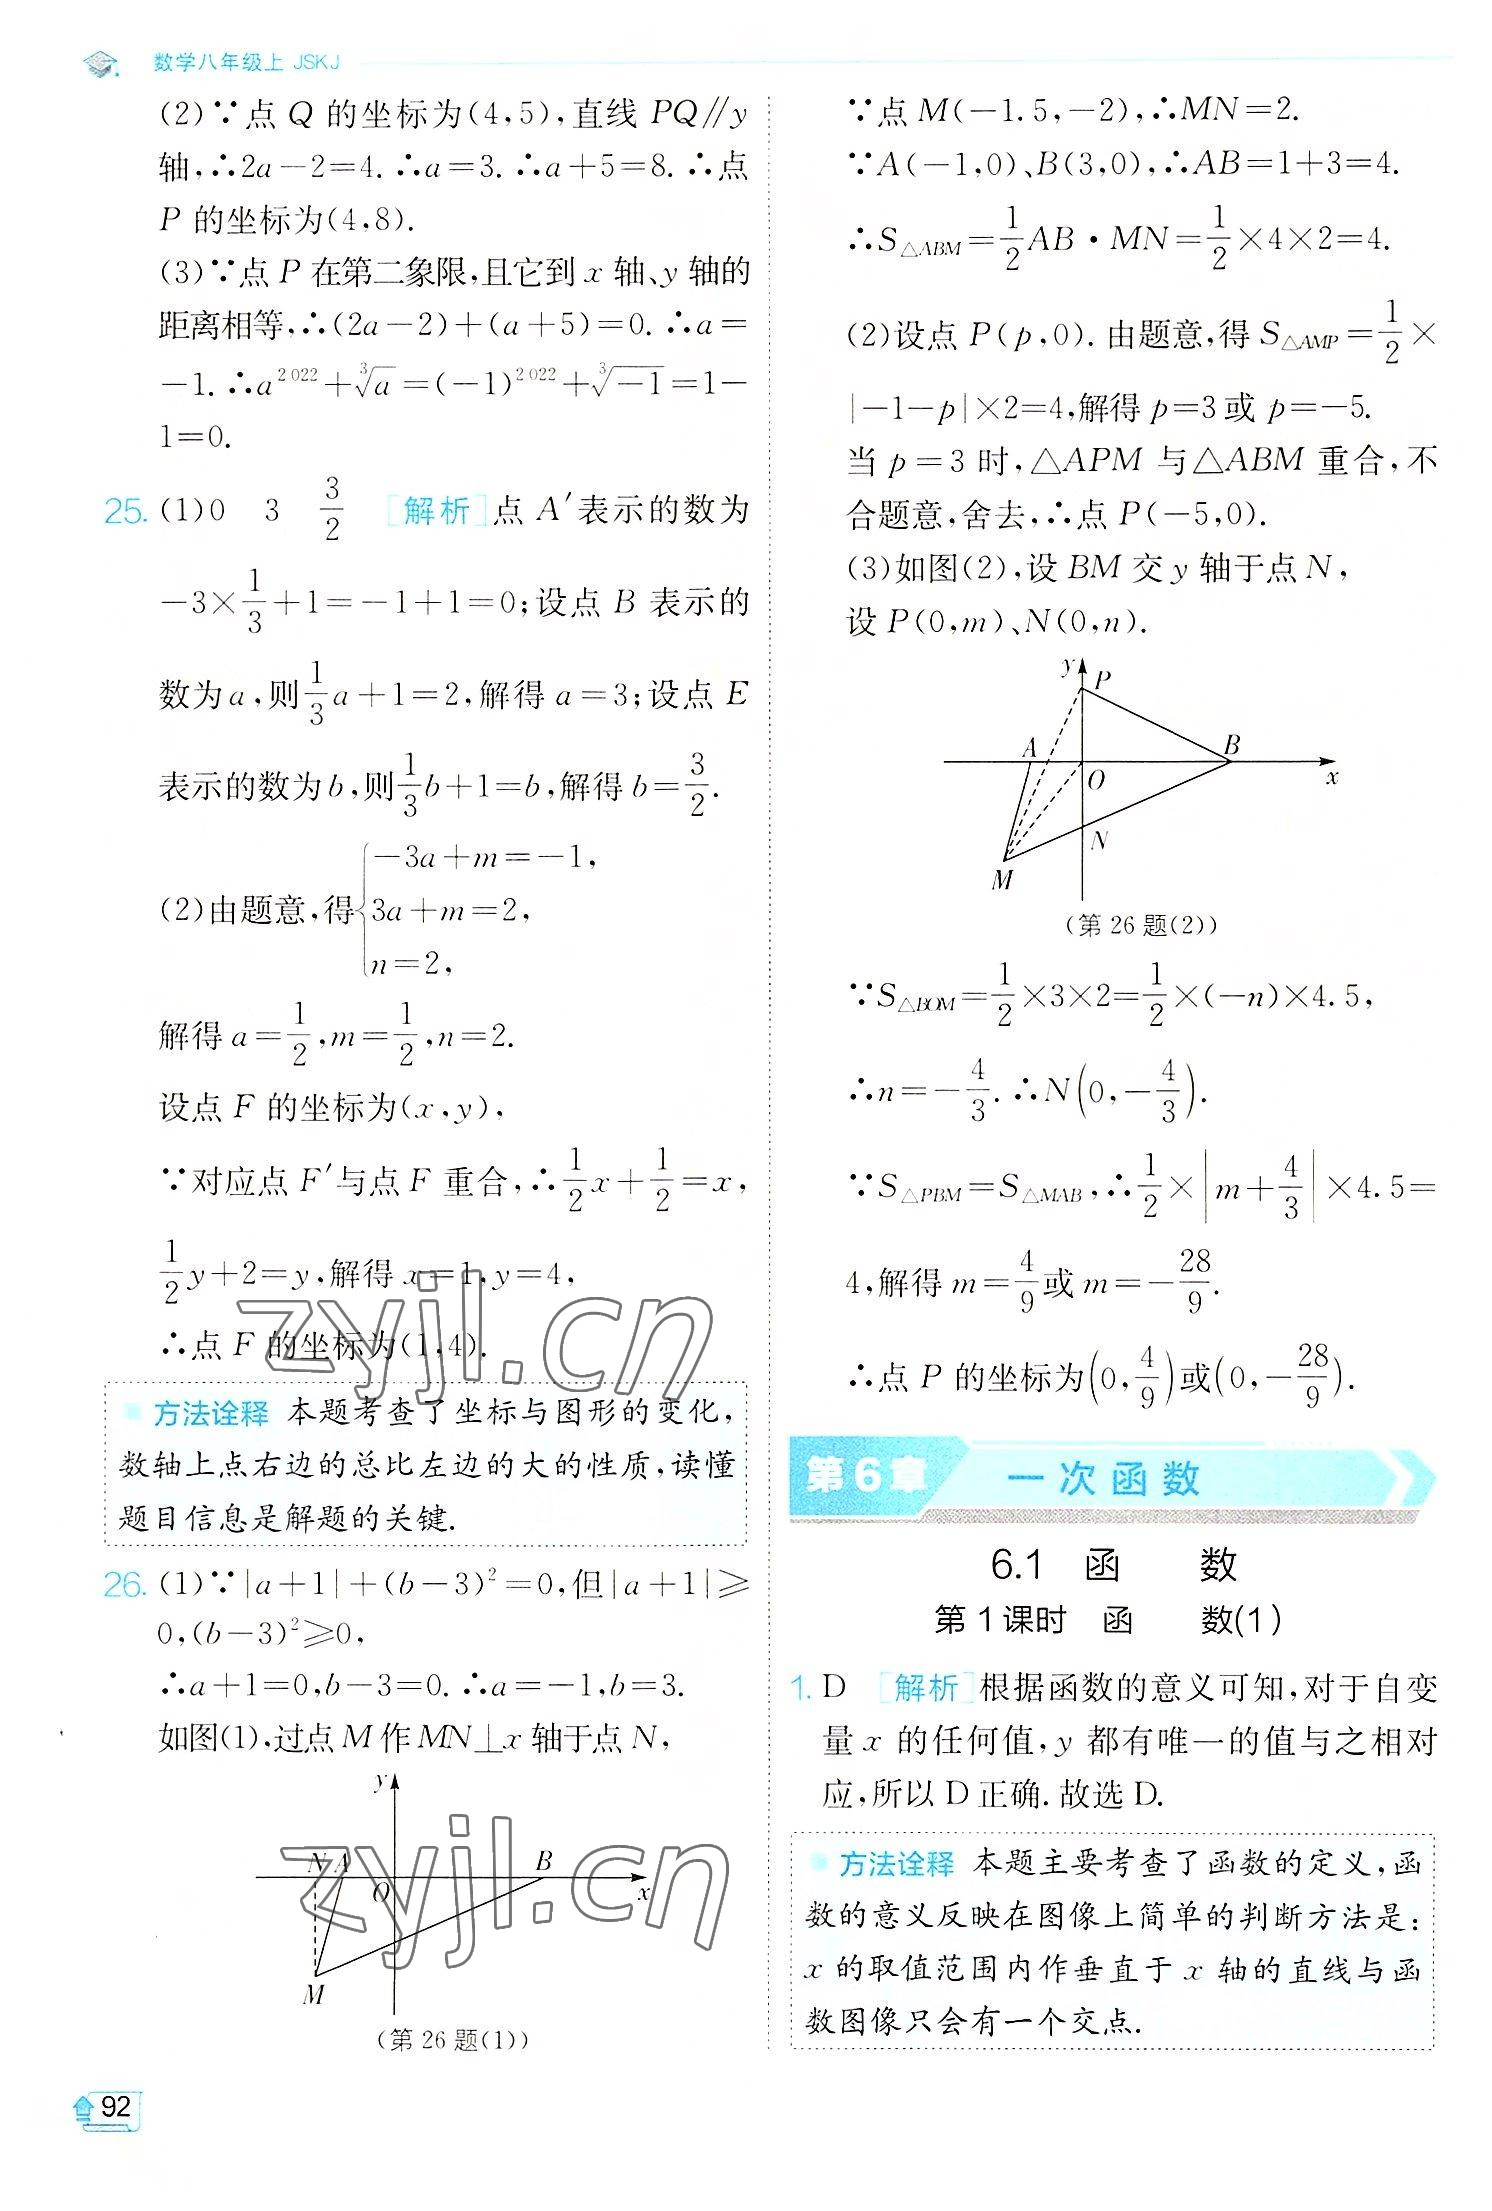 数学八年级上 JSKJ
(2)∵点 Q 的坐标为(4,5),直线 PQ∥y
轴,∴2a－2＝4.∴a＝3.∴a＋5＝8.∴点
P 的坐标为(4,8).
(3)∵点 P 在第二象限,且它到 x 轴、y 轴的
距离相等,∴(2a－2)＋(a＋5)＝0.∴a＝
－1.∴a²⁰²²＋∛a＝(－1)²⁰²²＋∛－1＝1－
1＝0.
25. (1)0 3 3/2 [解析]点 A′表示的数为
－3×1/3＋1＝－1＋1＝0;设点 B 表示的
数为a,则1/3a＋1＝2,解得 a＝3;设点 E
表示的数为b,则1/3b＋1＝b,解得b＝3/2.
(2)由题意,得{－3a＋m＝－1,
3a＋m＝2,
n＝2,
解得 a＝1/2,m＝1/2,n＝2.
设点 F 的坐标为(x,y),
∵对应点 F′与点 F 重合,∴1/2x＋1/2＝x,
1/2y＋2＝y,解得 x＝1,y＝4,
∴点 F 的坐标为(1,4).
方法诠释 本题考查了坐标与图形的变化,
数轴上点右边的总比左边的大的性质,读懂
题目信息是解题的关键.
26. (1)∵|a＋1|＋(b－3)²＝0,但|a＋1|≥
0,(b－3)²≥0,
∴a＋1＝0,b－3＝0.∴a＝－1,b＝3.
如图(1),过点M作MN⊥x轴于点N,
y
N A O B x
M
(第26题(1))
92
∵点M(－1.5,－2),∴MN＝2.
∵A(－1,0)、B(3,0),∴AB＝1＋3＝4.
∴S△ABM＝1/2AB·MN＝1/2×4×2＝4.
(2)设点 P(p,0).由题意,得 S△AMP＝1/2×
|－1－p|×2＝4,解得 p＝3或 p＝－5.
当 p＝3 时,△APM 与△ABM 重合,不
合题意,舍去,∴点P(－5,0).
(3)如图(2),设BM交y轴于点N,
设P(0,m)、N(0,n).
y P
A B
O x
N
M
(第26题(2))
∵S△BOM＝1/2×3×2＝1/2×(－n)×4.5,
∴n＝－4/3.∴N(0,－4/3).
∵S△PBM＝S△MAB,∴1/2×|m＋4/3|×4.5＝
4,解得 m＝4/9或m＝－28/9.
∴点 P 的坐标为(0,4/9)或(0,－28/9).
第6章 一次函数
6.1 函 数
第1课时 函 数(1)
1. D [解析]根据函数的意义可知,对于自变
量 x 的任何值,y 都有唯一的值与之相对
应,所以D正确.故选D.
方法诠释 本题主要考查了函数的定义,函
数的意义反映在图像上简单的判断方法是:
x 的取值范围内作垂直于 x 轴的直线与函
数图像只会有一个交点.
zyjl.cn
zyjl.cn